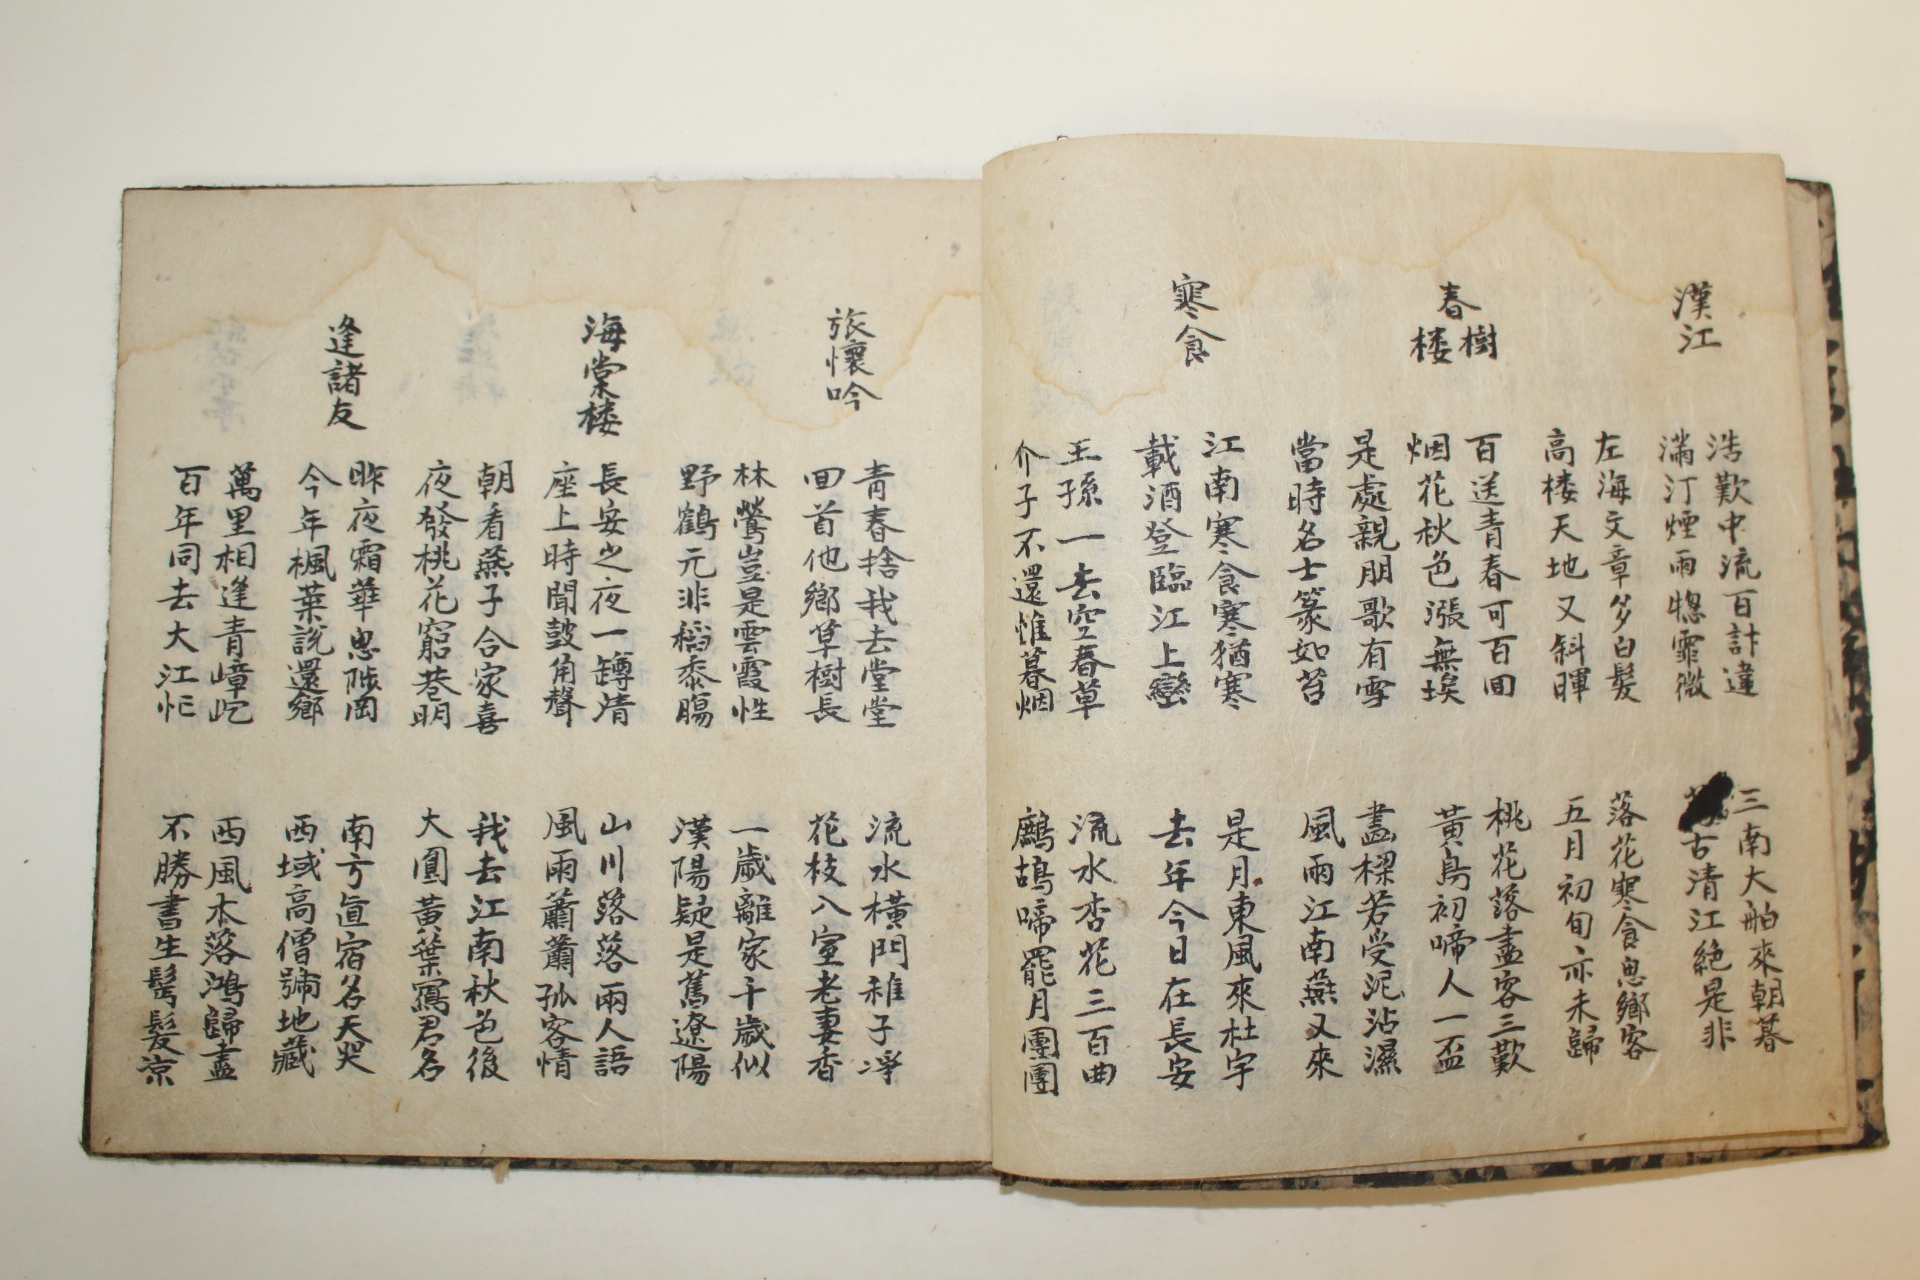 漢江
浩歎中流百計違 三南大舶來朝暮
滿汀煙雨惚霏微 古清江絶是非
左海文章多白髮 落花寒食思鄉客
高楼天地又斜暉 五月初旬亦未歸
春樹楼
百送青春可百回 桃花落盡客三歎
烟花秋色漲無埃 黃鳥初啼人一盃
是處親朋歌有雪 畵樑若受泥沾濕
當時名士篆如苔 風雨江南燕又來
寒食
江南寒食寒猶寒 是月東風來杜宇
載酒登臨江上巒 去年今日在長安
王孫一去空春草 流水杏花三百曲
介子不還惟暮烟 鷓鴣啼罷月團團
旅懷吟
青春捨我去堂堂 流水橫門稚子凈
回首他鄉草樹長 花枝八室老妻香
林鶯豈是雲霞性 一歲離家千歲似
野鶴元非稻黍腸 漢陽疑是舊遼陽
海棠楼
長安之夜一罇清 山川落落兩人語
座上時聞鼓角聲 風雨蕭蕭孤客情
朝看燕子合家喜 我去江南秋色後
夜發桃花窮巷明 大圓黃葉寫君名
逢諸友
昨夜霜華思陟岡 南方直宿名天哭
今年楓葉說還鄉 西域高僧號地藏
萬里相逢青嶂屹 西風木落鴻歸盡
百年同去大江忙 不勝書生髩髮凉